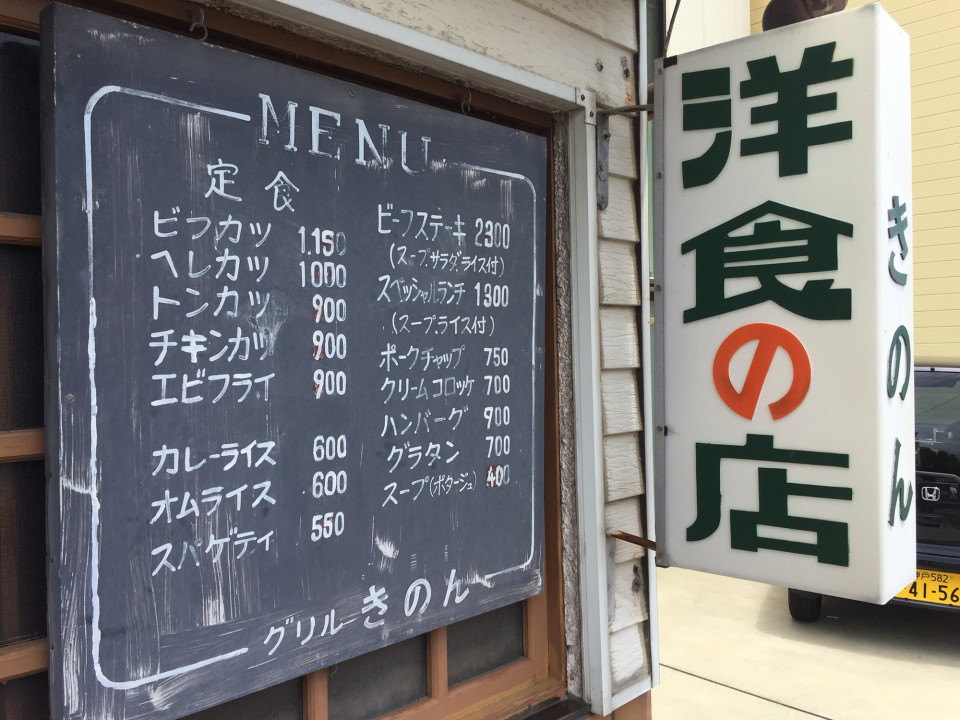 MENU
定食
ビフカツ 1.150
ヘレカツ 1000
トンカツ 900
チキンカツ 900
エビフライ 900
カレーライス 600
オムライス 600
スパゲティ 550
ビーフステーキ 2300
(スープ.サラダ.ライス付)
スペッシャルランチ 1300
(スープ.ライス付)
ポークチャップ 750
クリームコロッケ 700
ハンバーグ 900
グラタン 700
スープ(ポタージュ) 400
グリル きのん
洋食の店
きのん
神戸 582
41-56